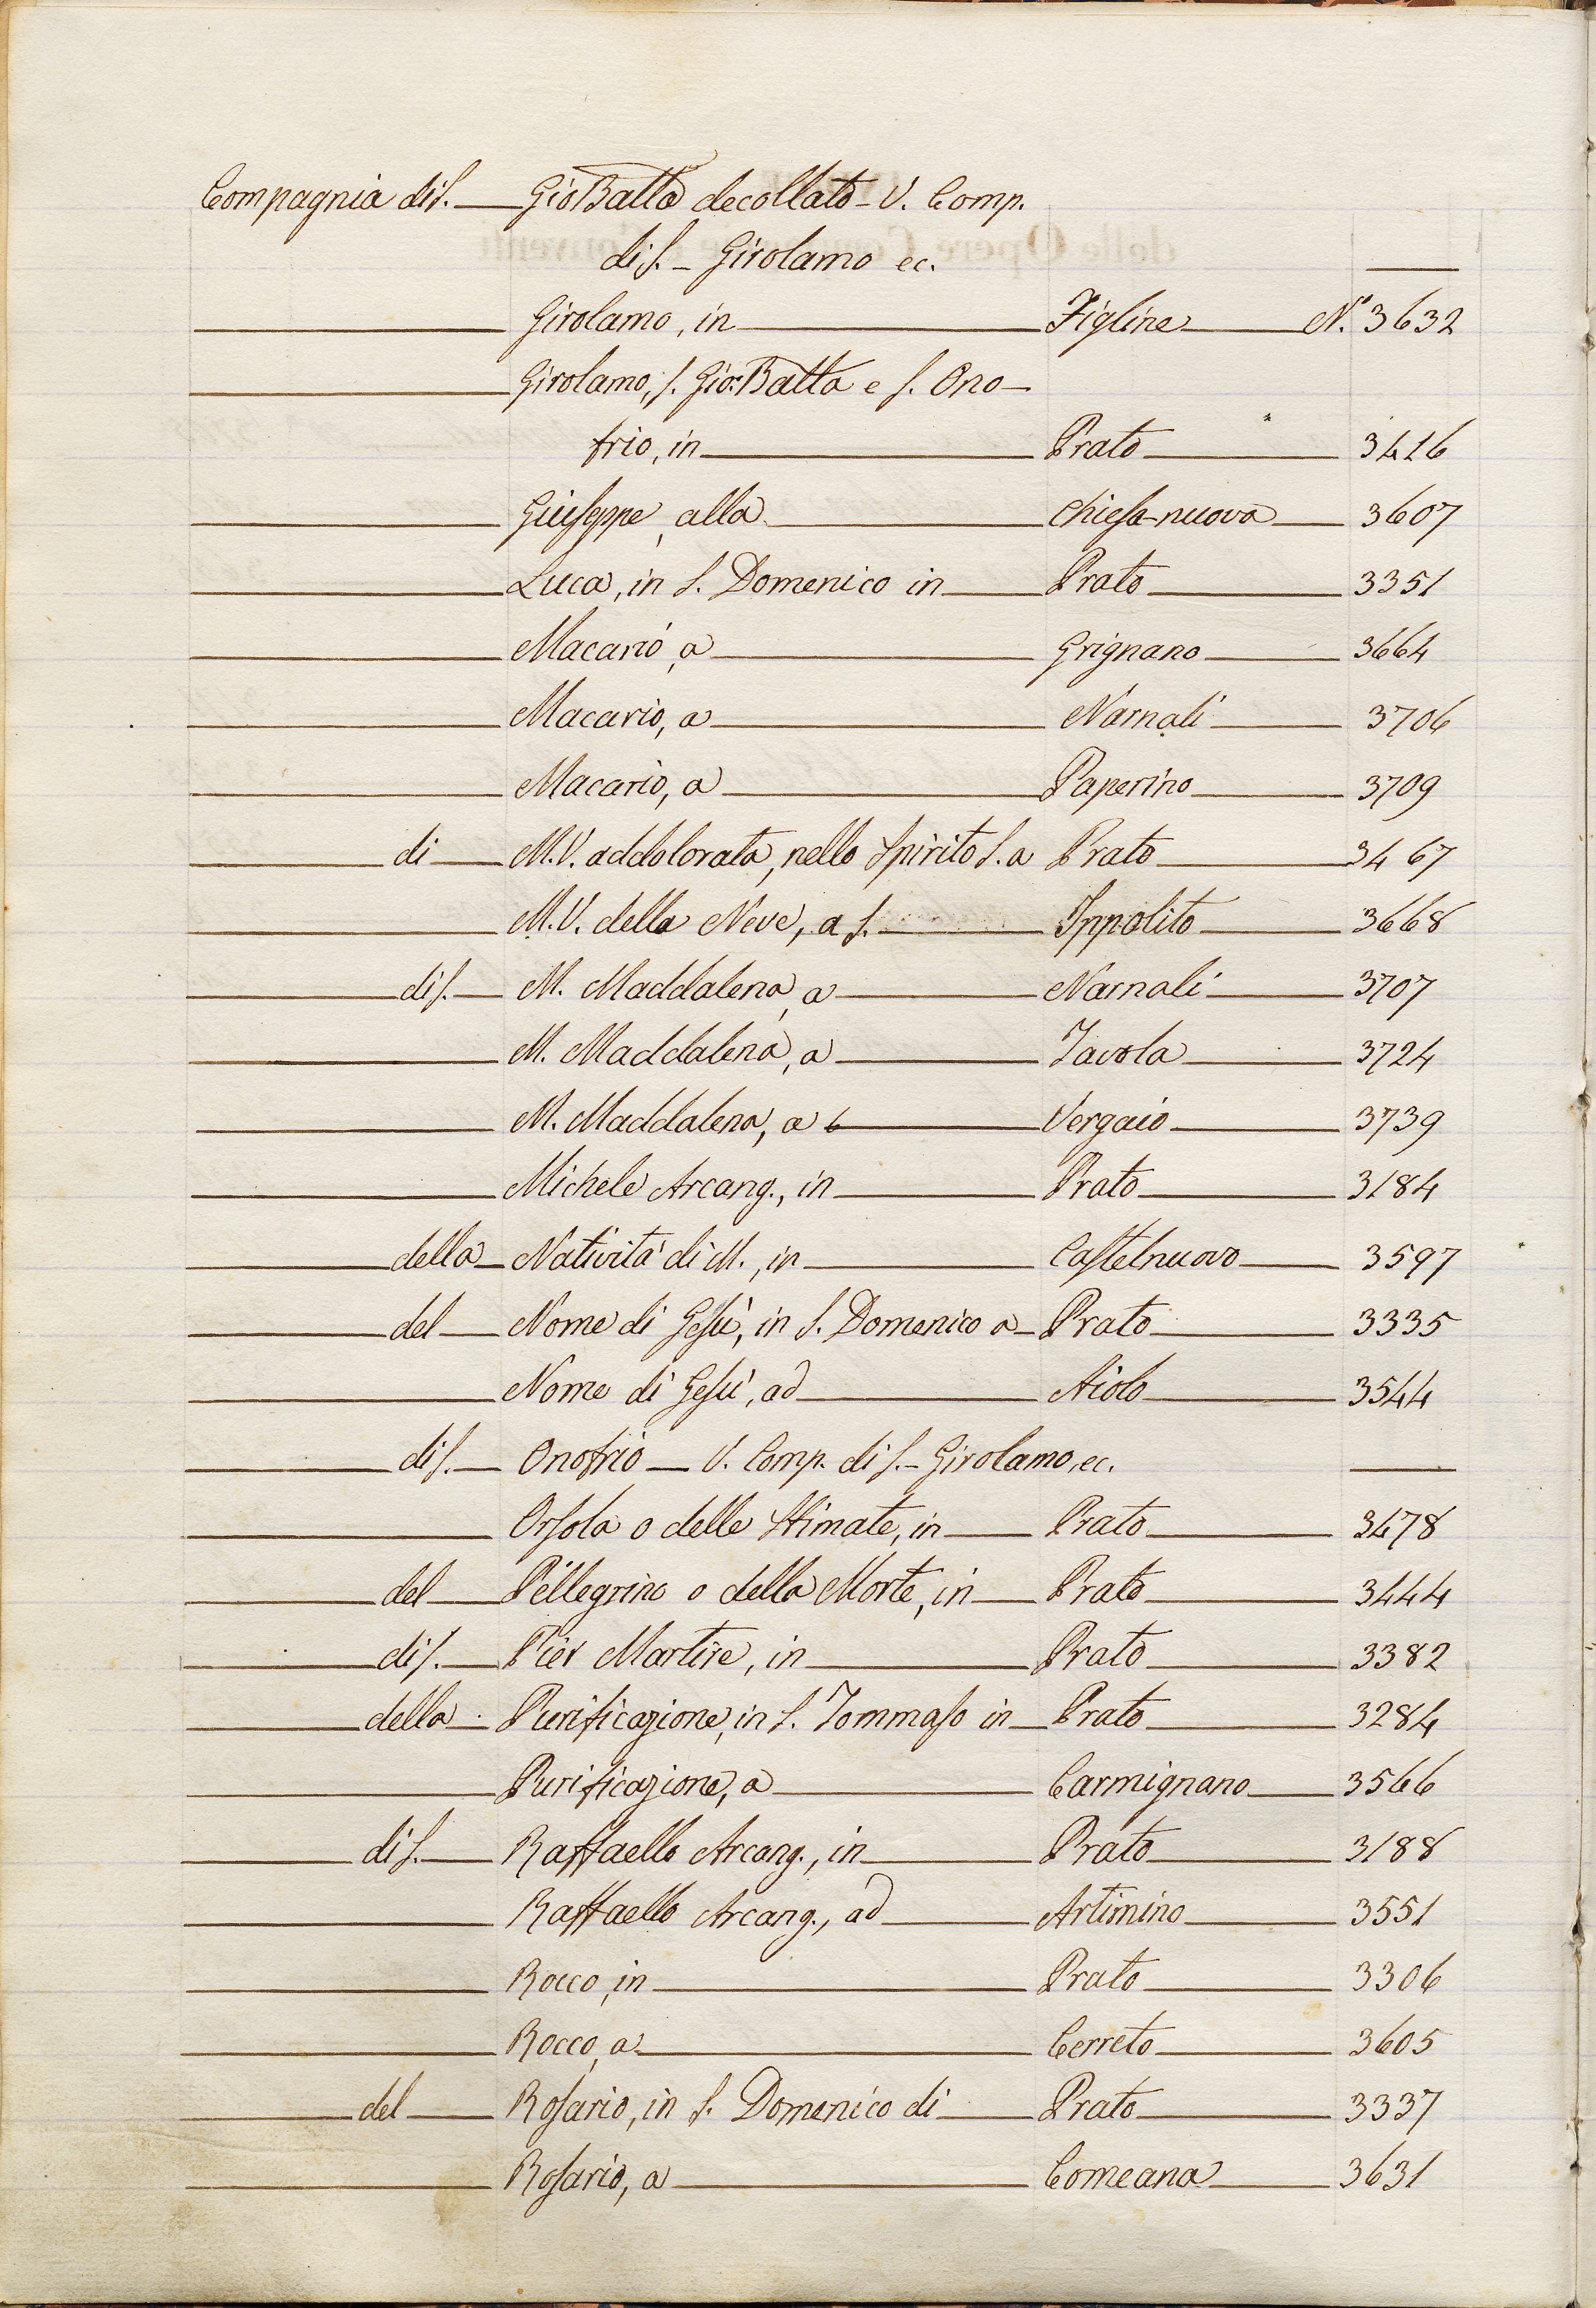 Compagnia di S. — Gio Batta decollato - V. Comp.
di S. - Girolamo ec. —
— Girolamo, in — Figline — N.° 3632
— Girolamo, S. Gio: Batta e S. Ono-
frio, in — Prato — 3416
— Giuseppe, alla — Chiesa-nuova — 3607
— Luca, in S. Domenico in — Prato — 3351
— Macario, a — Grignano — 3664
— Macario, a — Narnali — 3706
— Macario, a — Paperino — 3709
— di — M. V. addolorata, nello Spirito S. a Prato — 3467
— M. V. della Neve, a S. — Ippolito — 3668
— di S. — M. Maddalena, a — Narnali — 3707
— M. Maddalena, a — Tavola — 3724
— M. Maddalena, a — Vergaio — 3739
— Michele Arcang., in — Prato — 3184
— della — Natività di M., in — Castelnuovo — 3597
— del — Nome di Gesù, in S. Domenico a — Prato — 3335
— Nome di Gesù, ad — Aiolo — 3544
— di S. — Onofrio — V. Comp. di S. - Girolamo, ec. —
— Orsola o delle Stimate, in — Prato — 3478
— del — Pellegrino o della Morte, in — Prato — 3444
— di S. — Pier Martire, in — Prato — 3382
— della — Purificazione, in S. Tommaso in — Prato — 3284
— Purificazione, a — Carmignano — 3566
— di S. — Raffaello Arcang., in — Prato — 3188
— Raffaello Arcang., ad — Artimino — 3551
— Rocco, in — Prato — 3306
— Rocco, a — Cerreto — 3605
— del — Rosario, in S. Domenico di — Prato — 3337
— Rosario, a — Comeana — 3631